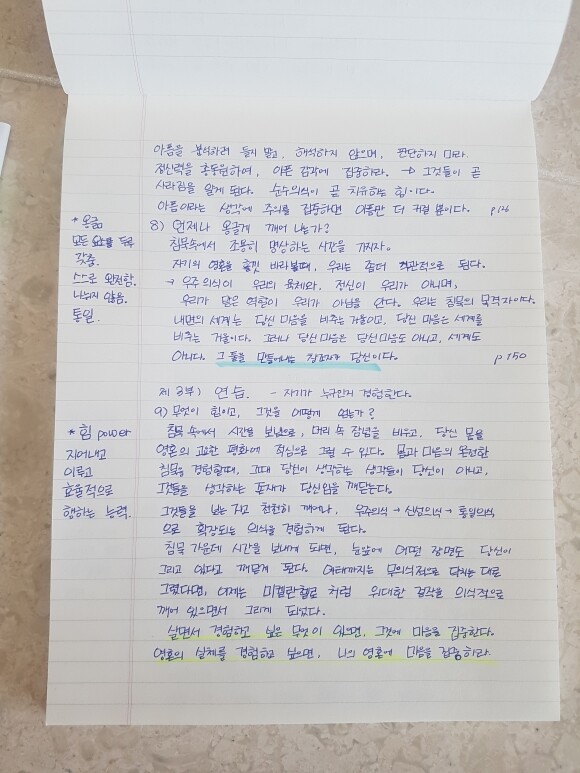 아픔을 분석하려 들지 말고, 해석하지 않으며, 판단하지 마라.
정신력을 총동원하여, 아픈 감각에 집중하라. → 그것들이 곧
사라짐을 알게 된다. 순수의식이 곧 치유하는 힘이다.
아픔이라는 생각에 주의를 집중하면 아픔만 더 커질 뿐이다. p126
* 옹글
모든 요소를 두루
갖춤.
스스로 완전함.
나뉘지 않음.
통일.
8) 언제나 옹글게 깨어 나는가?
침묵속에서 조용히 명상하는 시간을 가지자.
자기의 영혼을 흘낏 바라볼때, 우리는 좀더 객관적으로 된다.
→ 우주의식이 우리의 육체라, 정신이 우리가 아니며,
우리가 맡은 역할이 우리가 아님을 안다. 우리는 침묵의 목격자이다.
내면의 세계는 당신 마음을 비추는 거울이고, 당신 마음은 세계를
비추는 거울이다. 그러나 당신마음은 당신마음도 아니고, 세계도
아니다. 그 둘을 만들어내는 창조자가 당신이다. p150
제 3부) 연습. - 자기가 누구인지 경험한다.
9) 무엇이 힘이고, 그것을 어떻게 얻는가?
* 힘 power
지어내고
이루고
효율적으로
행하는 능력.
침묵 속에서 시간을 보냄으로, 머리 속 잡념을 비우고, 당신 몸을
영혼의 고요한 평화에 적심으로 그럴 수 있다. 몸과 마음의 온전한
침묵을 경험할때, 그때 당신이 생각하는 생각들이 당신이 아니고,
그것들을 생각하는 존재가 당신임을 깨닫는다.
그것들을 보는 자로 천천히 깨어나, 우주의식 → 신성의식 → 통일의식
으로 확장되는 의식을 경험하게 된다.
침묵 가운데 시간을 보내게 되면, 눈앞에 어떤 장면도 당신이
그리고 있다고 깨닫게 된다. 여태까지는 무의식적으로 닥치는 대로
그렸다면, 이제는 미켈란젤로 처럼 위대한 걸작을 의식적으로
깨어 있으면서 그리게 되었다.
살면서 경험하고 싶은 무엇이 있으면, 그것에 마음을 집중한다.
영혼의 실체를 경험하고 싶으면, 나의 영혼에 마음을 집중하라.